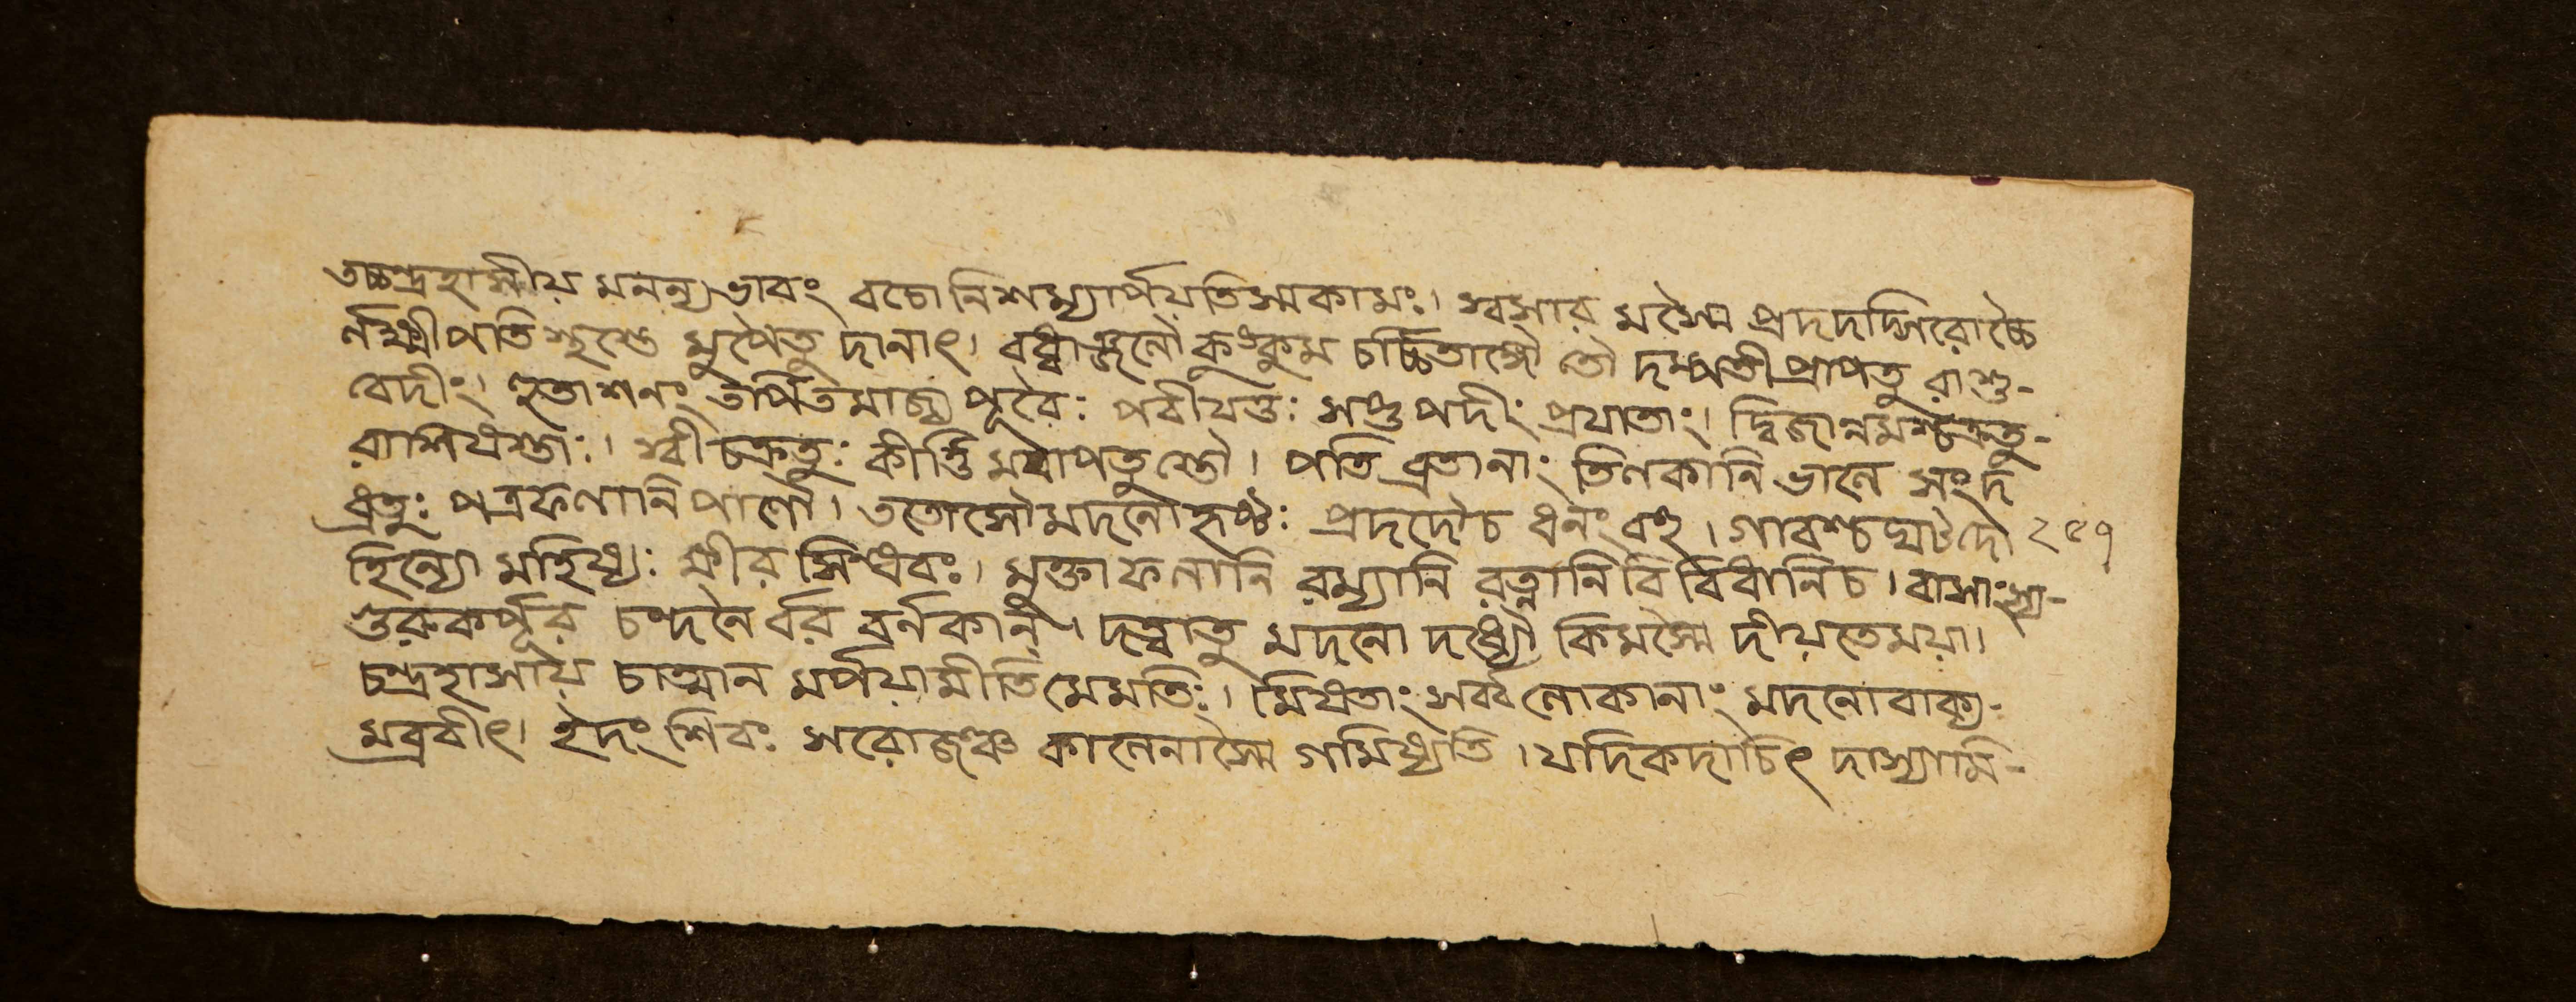 তচ্চন্দ্রহাসীয় মনন্যভাবং বচো নিশম্যার্পয়তিস্মকামঃ। স্বসার মস্মৈ প্রদদদ্গিরোচ্চৈ
র্নক্ষ্মীপতি স্তুষ্যে মুপৈতু দানাৎ। বধ্বাঞ্জনৌ কুঙ্কুম চর্চ্চিতাঙ্গৌ তৌ দম্পতী প্রাপতু রাশু-
বেদীং। হুতাশনং তর্পিতমাজ্য পূরৈঃ পরীযতুঃ সপ্তপদীং প্রযাতাং। দ্বিজান্নমশ্চক্রতু-
রাশিষস্তাঃ। স্বীচক্রতুঃ কীর্ত্তি মবাপতুস্তৌ। পতিব্রতানাং তিলকানি ভালে সংদ
ধ্রতুঃ পত্রফলানি পাণৌ। ততোসৌ মদনো হৃষ্টঃ প্রদদৌচ ধনং বহু। গাবশ্চ ঘটদো ২৫৭
হিন্যো মহিষ্যঃ ক্ষীর সিন্ধবঃ। মুক্তাফলানি রম্যানি রত্নানি বিবিধানিচ। বাসাংস্য-
গুরুকর্পূর চন্দনৈর্বর বর্নকান্। দত্ত্বাতু মদনো দধ্যৌ কিমস্মৈ দীয়তেময়া।
চন্দ্রহাসায় চাত্মান মর্পয়ামীতি মেমতিঃ। মিষতাং সর্ব্বলোকানাং মদনোবাক্য-
মব্রবীৎ। ইদং শিবঃ সরোজঞ্চ কালেনাস্মৈ গমিষ্যতি। যদিকদাচিৎ দাস্যামি-